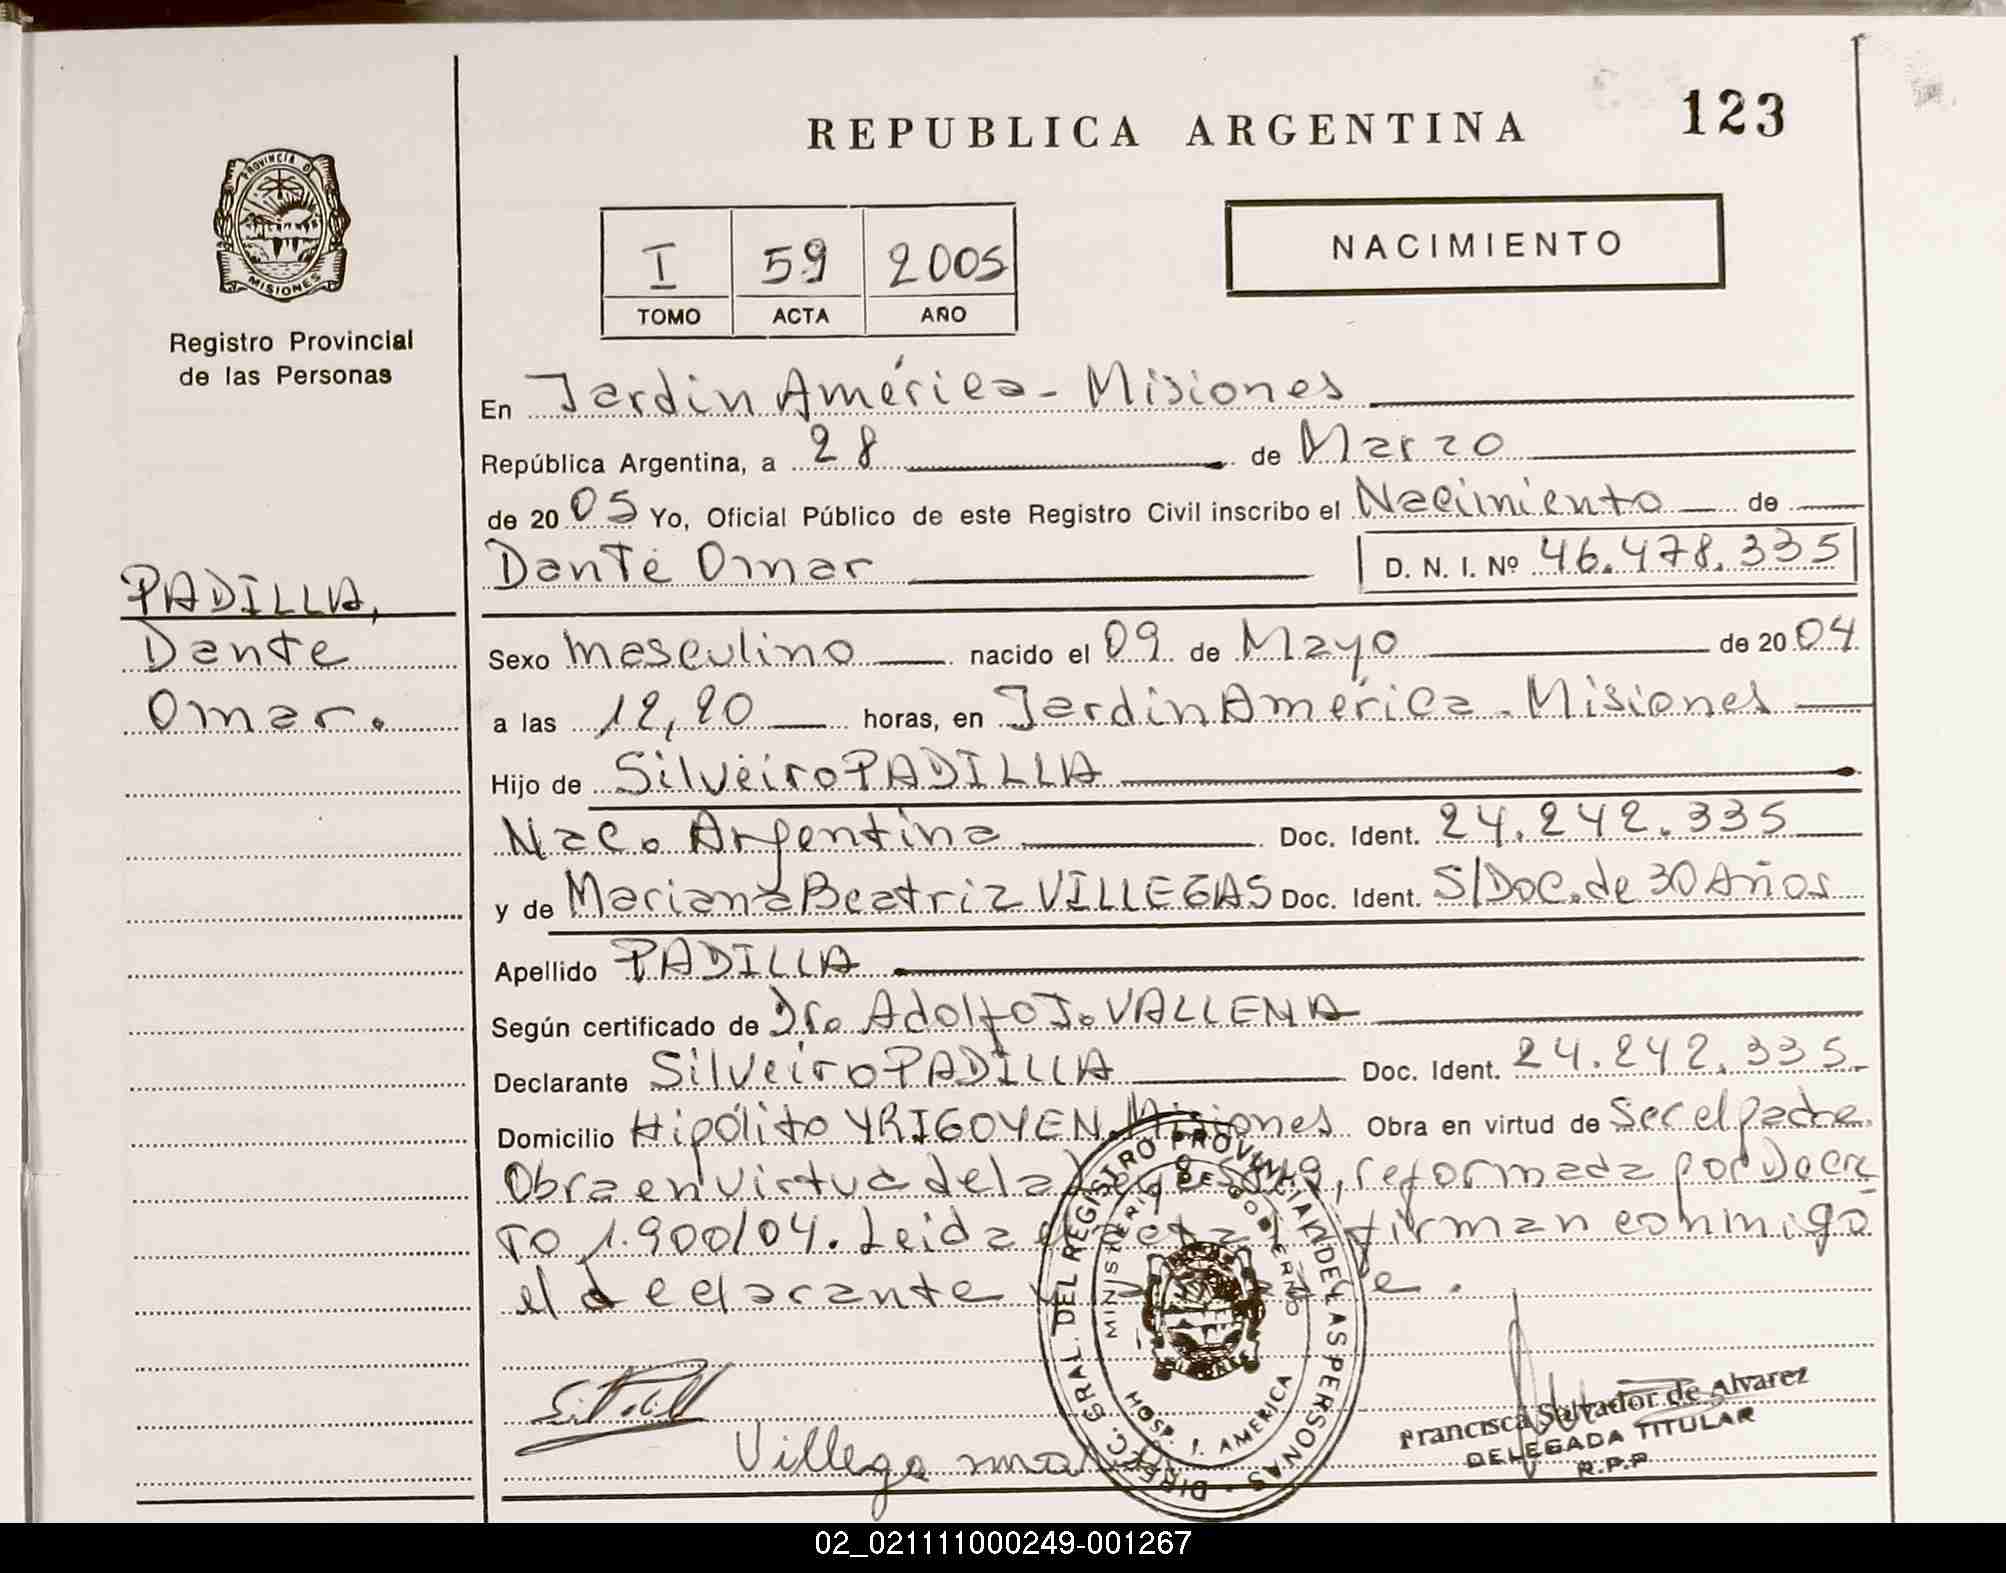 REPUBLICA ARGENTINA
123
PROVINCIA D
MISIONES
Registro Provincial
de las Personas
I 59 2005
TOMO ACTA AÑO
NACIMIENTO
En Jardin América - Misiones
República Argentina, a 28 de Marzo
de 2005 Yo, Oficial Público de este Registro Civil inscribo el Nacimiento de
Dante Omar D. N. I. Nº 46.478.335
PADILLA,
Dante
Omar.
Sexo masculino nacido el 09 de Mayo de 2004
a las 12,20 horas, en Jardin América - Misiones
Hijo de Silveiro PADILLA
Nac. Argentina Doc. Ident. 24.242.335
y de Mariana Beatriz VILLEGAS Doc. Ident. S/Doc. de 30 Años
Apellido PADILLA
Según certificado de Dr. Adolfo J. VALLENA
Declarante Silveiro PADILLA Doc. Ident. 24.242.335
Domicilio Hipólito YRIGOYEN. Misiones Obra en virtud de Ser el padre.
Obra en virtud de la Ley reformada por Decre
to 1.900/04. Leida el acta firman conmigo
el declarante
DIREC. GRAL. DEL REGISTRO PROVINCIAL DE LAS PERSONAS
MINISTERIO DE GOBIERNO
HOSP. J. AMERICA
Villega
Francisca Salvador de Alvarez
DELEGADA TITULAR
R.P.P
02_021111000249-001267